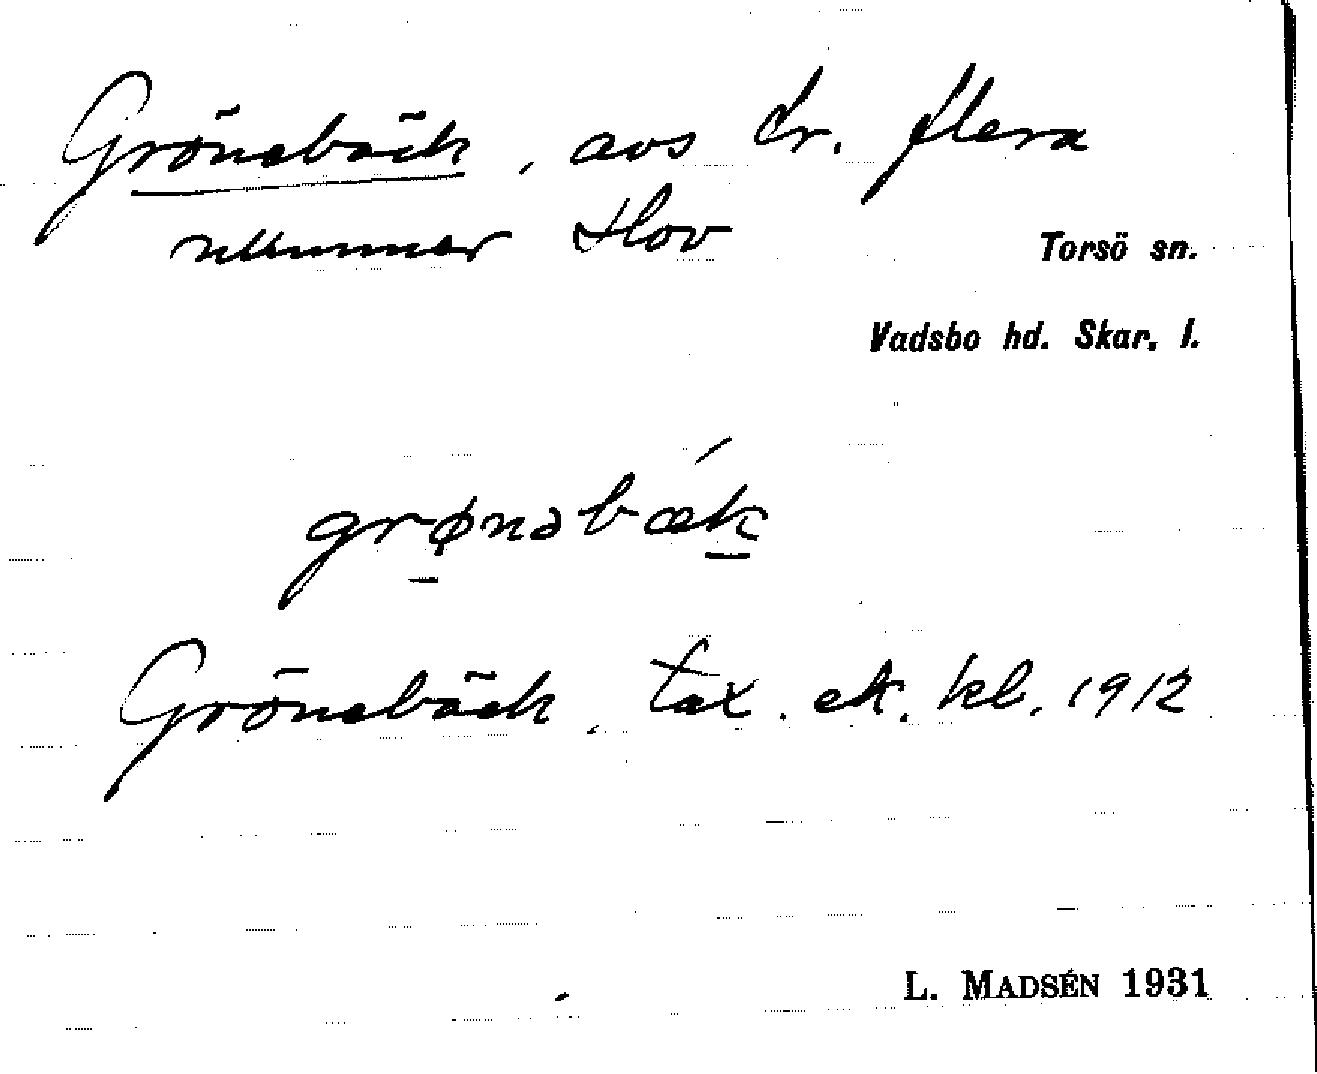 Grönebäck, avs fr. flera
nummer Hov
Torsö sn.
Vadsbo hd. Skar. l.
grønəbæk
Grönebäck. tax. kl. 1912
L. MADSÉN 1931